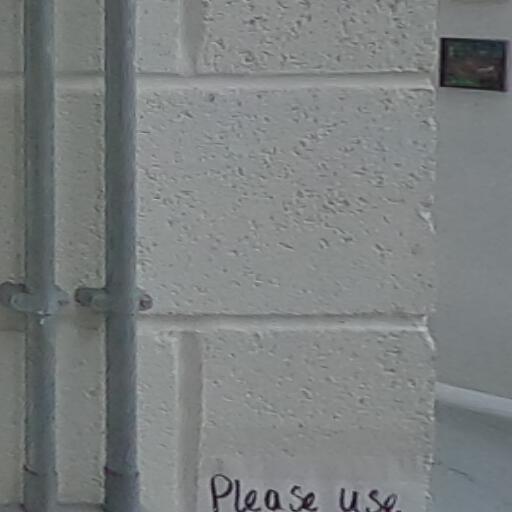 Please use